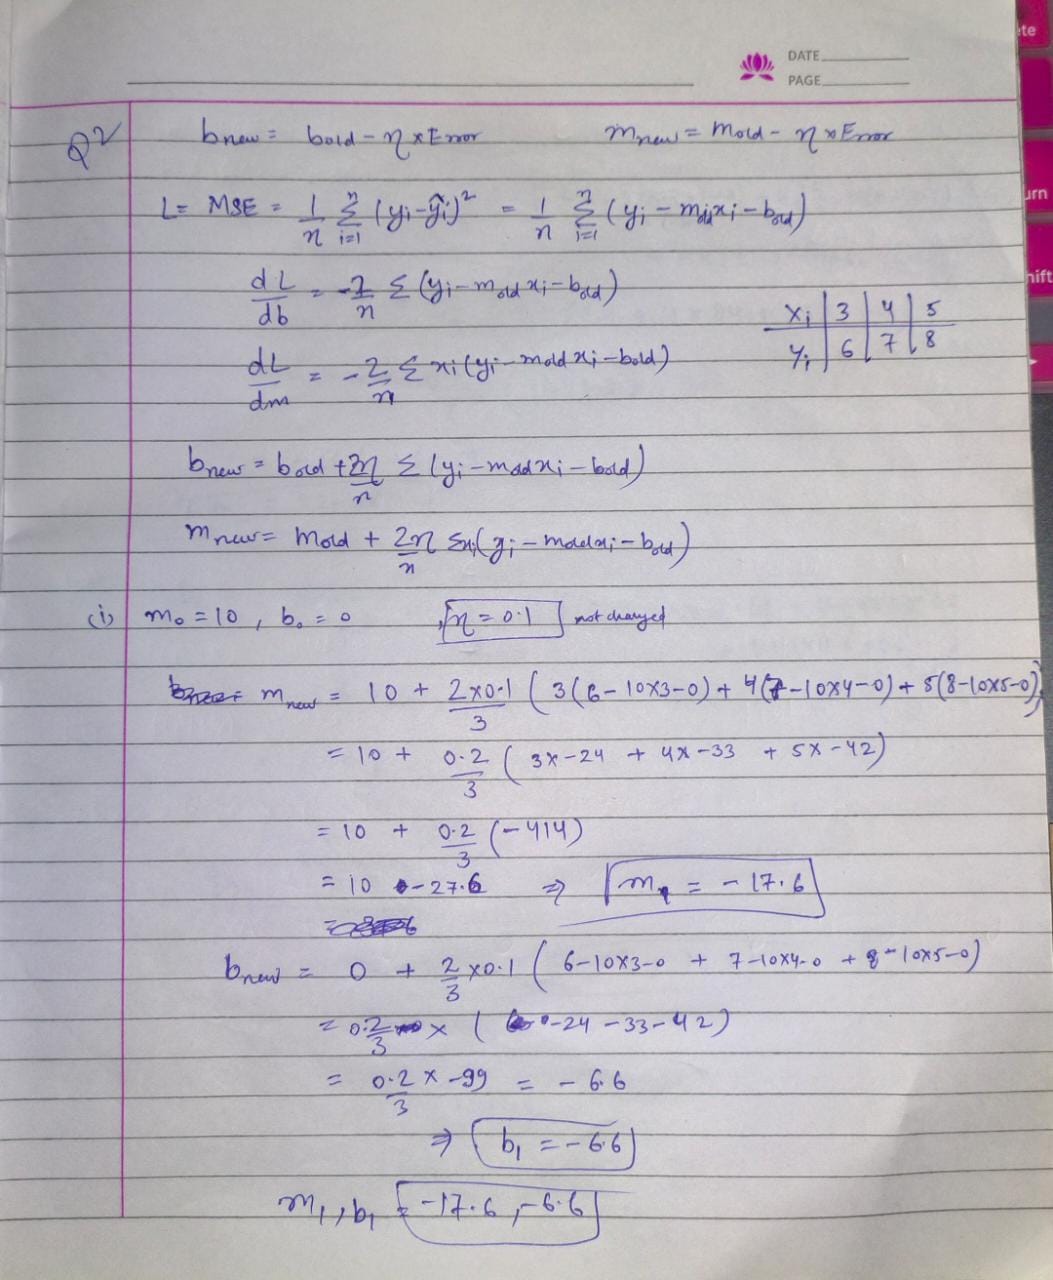 DATE
PAGE
Q2
bnew = bold - η x Error    mnew = mold - η x Error
L = MSE = 1/n Σ_{i=1}^{n} (yi - ŷi)² = 1/n Σ_{i=1}^{n} (yi - mold xi - bold)
dL/db = -2/n Σ (yi - mold xi - bold)
xi | 3 | 4 | 5
yi | 6 | 7 | 8
dL/dm = -2/n Σ xi (yi - mold xi - bold)
bnew = bold + 2η/n Σ (yi - mold xi - bold)
mnew = mold + 2η/n Σxi (yi - mold xi - bold)
(i) m₀ = 10 , b₀ = 0 , η = 0.1 not changed
mnew = 10 + 2x0.1/3 ( 3(6 - 10x3 - 0) + 4(7 - 10x4 - 0) + 5(8 - 10x5 - 0) )
= 10 + 0.2/3 ( 3x-24 + 4x-33 + 5x-42 )
= 10 + 0.2/3 (-414)
= 10 - 27.6 ⇒ m₁ = -17.6
bnew = 0 + 2/3 x 0.1 ( 6-10x3-0 + 7-10x4-0 + 8-10x5-0 )
= 0.2/3 x ( -24 - 33 - 42 )
= 0.2/3 x -99 = - 6.6
⇒ b₁ = -6.6
m₁, b₁ = -17.6, -6.6